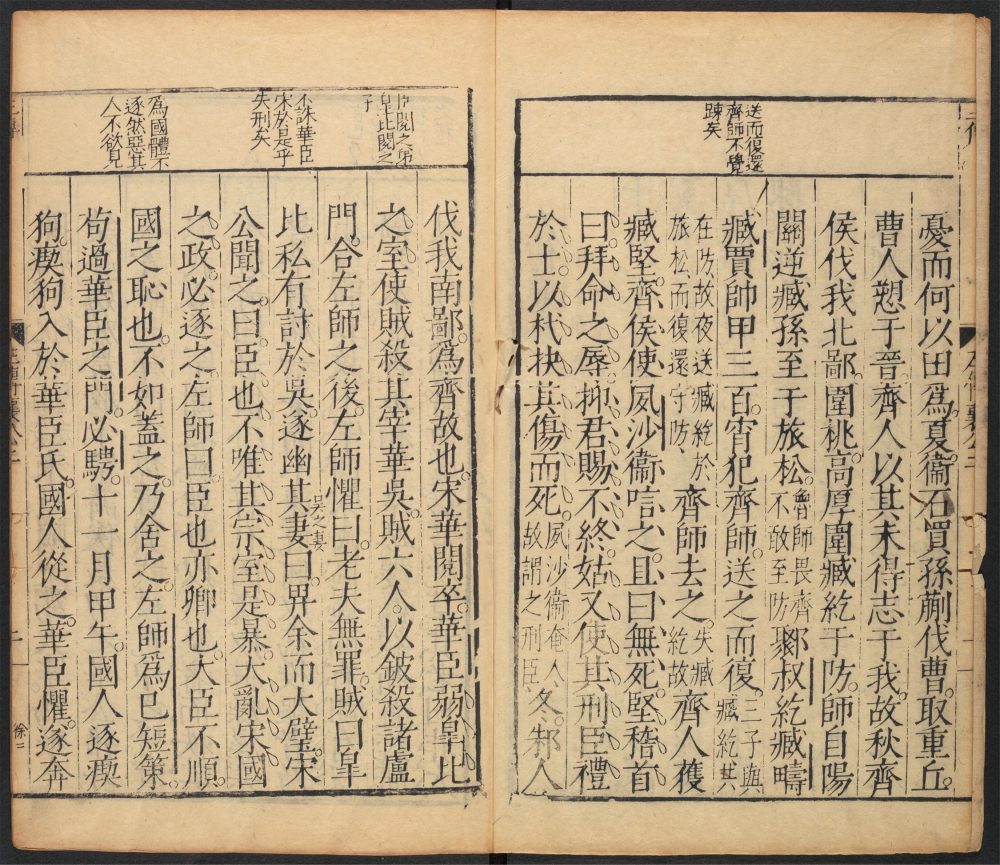 送而復還
齊師不覺
踈矣
憂而何以田爲。夏。衞石買孫蒯伐曹。取重丘。
曹人愬于晉。齊人以其未得志于我。故秋齊
侯伐我北鄙。圍桃。高厚圍臧紇于防。師自陽
關逆臧孫。至于旅松。魯師畏齊不敢至防郰叔紇臧疇
臧賈帥甲三百。宵犯齊師。送之而復。三子與臧紇共
在防故夜送臧紇於旅松而復還守防齊師去之。失臧紇故齊人獲
臧堅。齊侯使夙沙衞唁之。且曰無死。堅稽首
曰。拜命之辱。抑君賜不終。姑又使其刑臣禮
於士。以杙抉其傷而死。夙沙衞奄人故謂之刑臣冬。邾人
臣閱之弟
皐比閱之
子
不誅華臣
宋於是乎
失刑矣
爲國體不
逐然惡其
人不欲見
伐我南鄙。爲齊故也。宋華閱卒。華臣弱皐比
之室。使賊殺其宰華吳。賊六人。以鈹殺諸盧
門。合左師之後。左師懼曰。老夫無罪。賊曰。皐
比私有討於吳。遂幽其妻吳之妻曰。畀余而大璧。宋
公聞之。曰。臣也不唯其宗室是暴。大亂宋國
之政。必逐之。左師曰。臣也亦卿也。大臣不順。
國之恥也。不如蓋之。乃舍之。左師爲已短策。
苟過華臣之門。必騁。十一月甲午。國人逐瘈
狗。瘈狗入於華臣氏。國人從之。華臣懼。遂奔
徐二